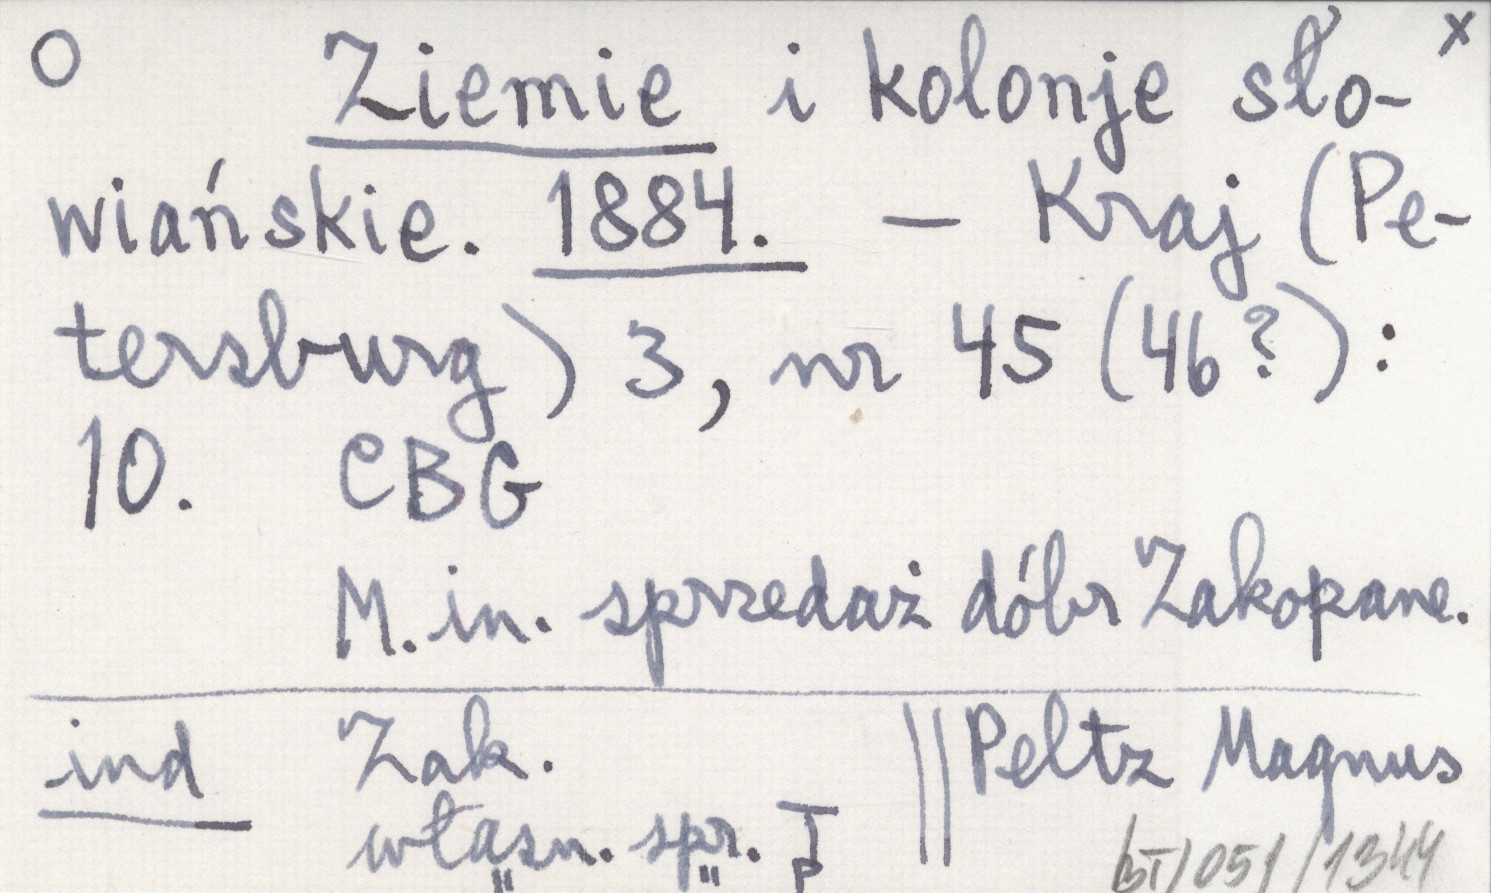 O Ziemie i kolonje sło- x
wiańskie. 1884. — Kraj (Pe-
tersburg) 3, nr 45 (46?):
10. CBG
M. in. sprzedaż dóbr Zakopane.
ind Zak. || Peltz Magnus
własn. spr.
/051/1344